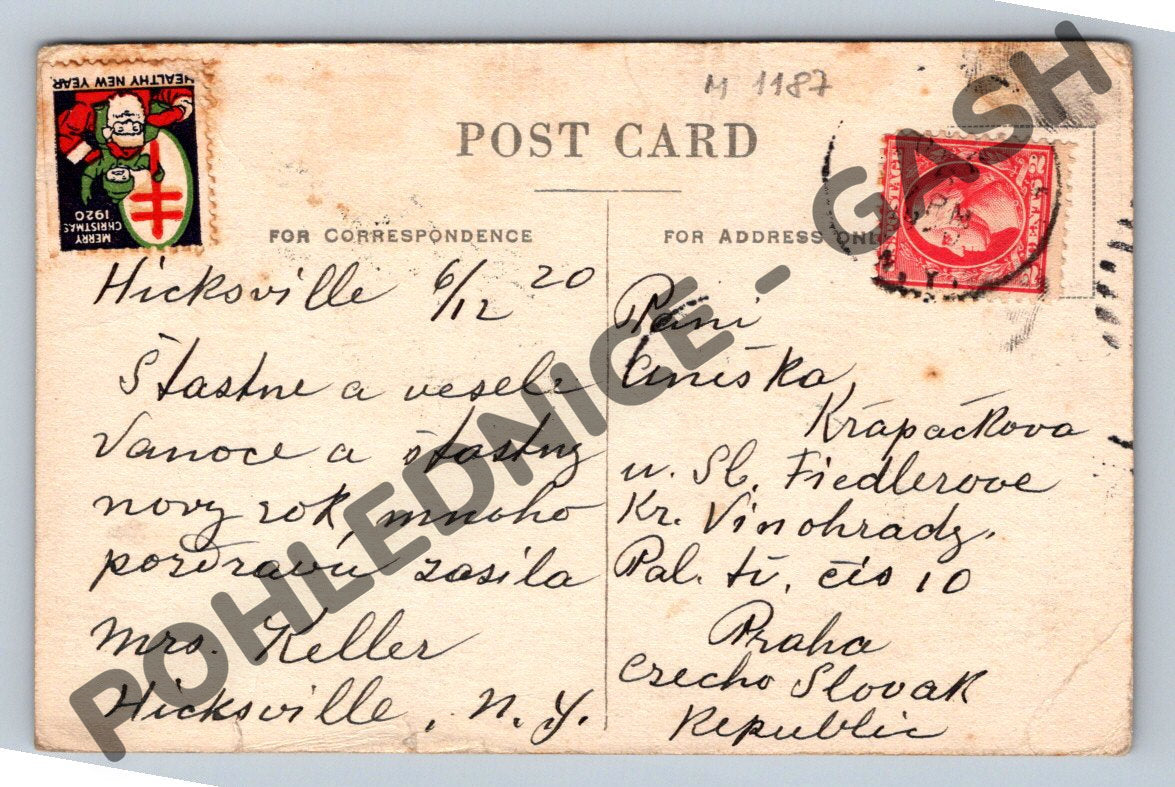 HEALTHY NEW YEAR
MERRY
CHRISTMAS
1920
M 1187
POST CARD
FOR CORRESPONDENCE
FOR ADDRESS ONLY
2 CENTS 2
Hicksville 6/12 20
Štastne a vesele
Vanoce a štastny
novy rok mnoho
pozdravů zasila
Mrs. Keller
Hicksville, N.Y.
Pani
Aneška
Křapačkova
u. Sl. Fiedlerove
Kr. Vinohrady.
Pal. tř. čís 10
Praha
Czecho Slovak
Republic
POHLEDNICE - GASH